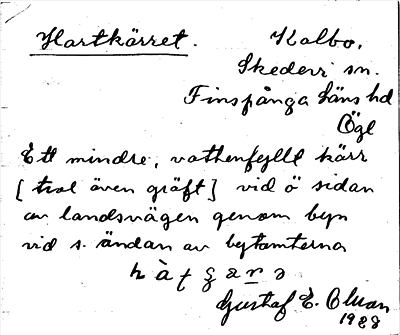 Hartkärret.
Kalbo.
Skedevi sn.
Finspånga läns hd
Ögl
Ett mindre, vattenfyllt kärr
[ trol även gräft ] vid ö sidan
av landsvägen genom byn
vid s. ändan av bytomterna
Gustaf E. Olsson
1928